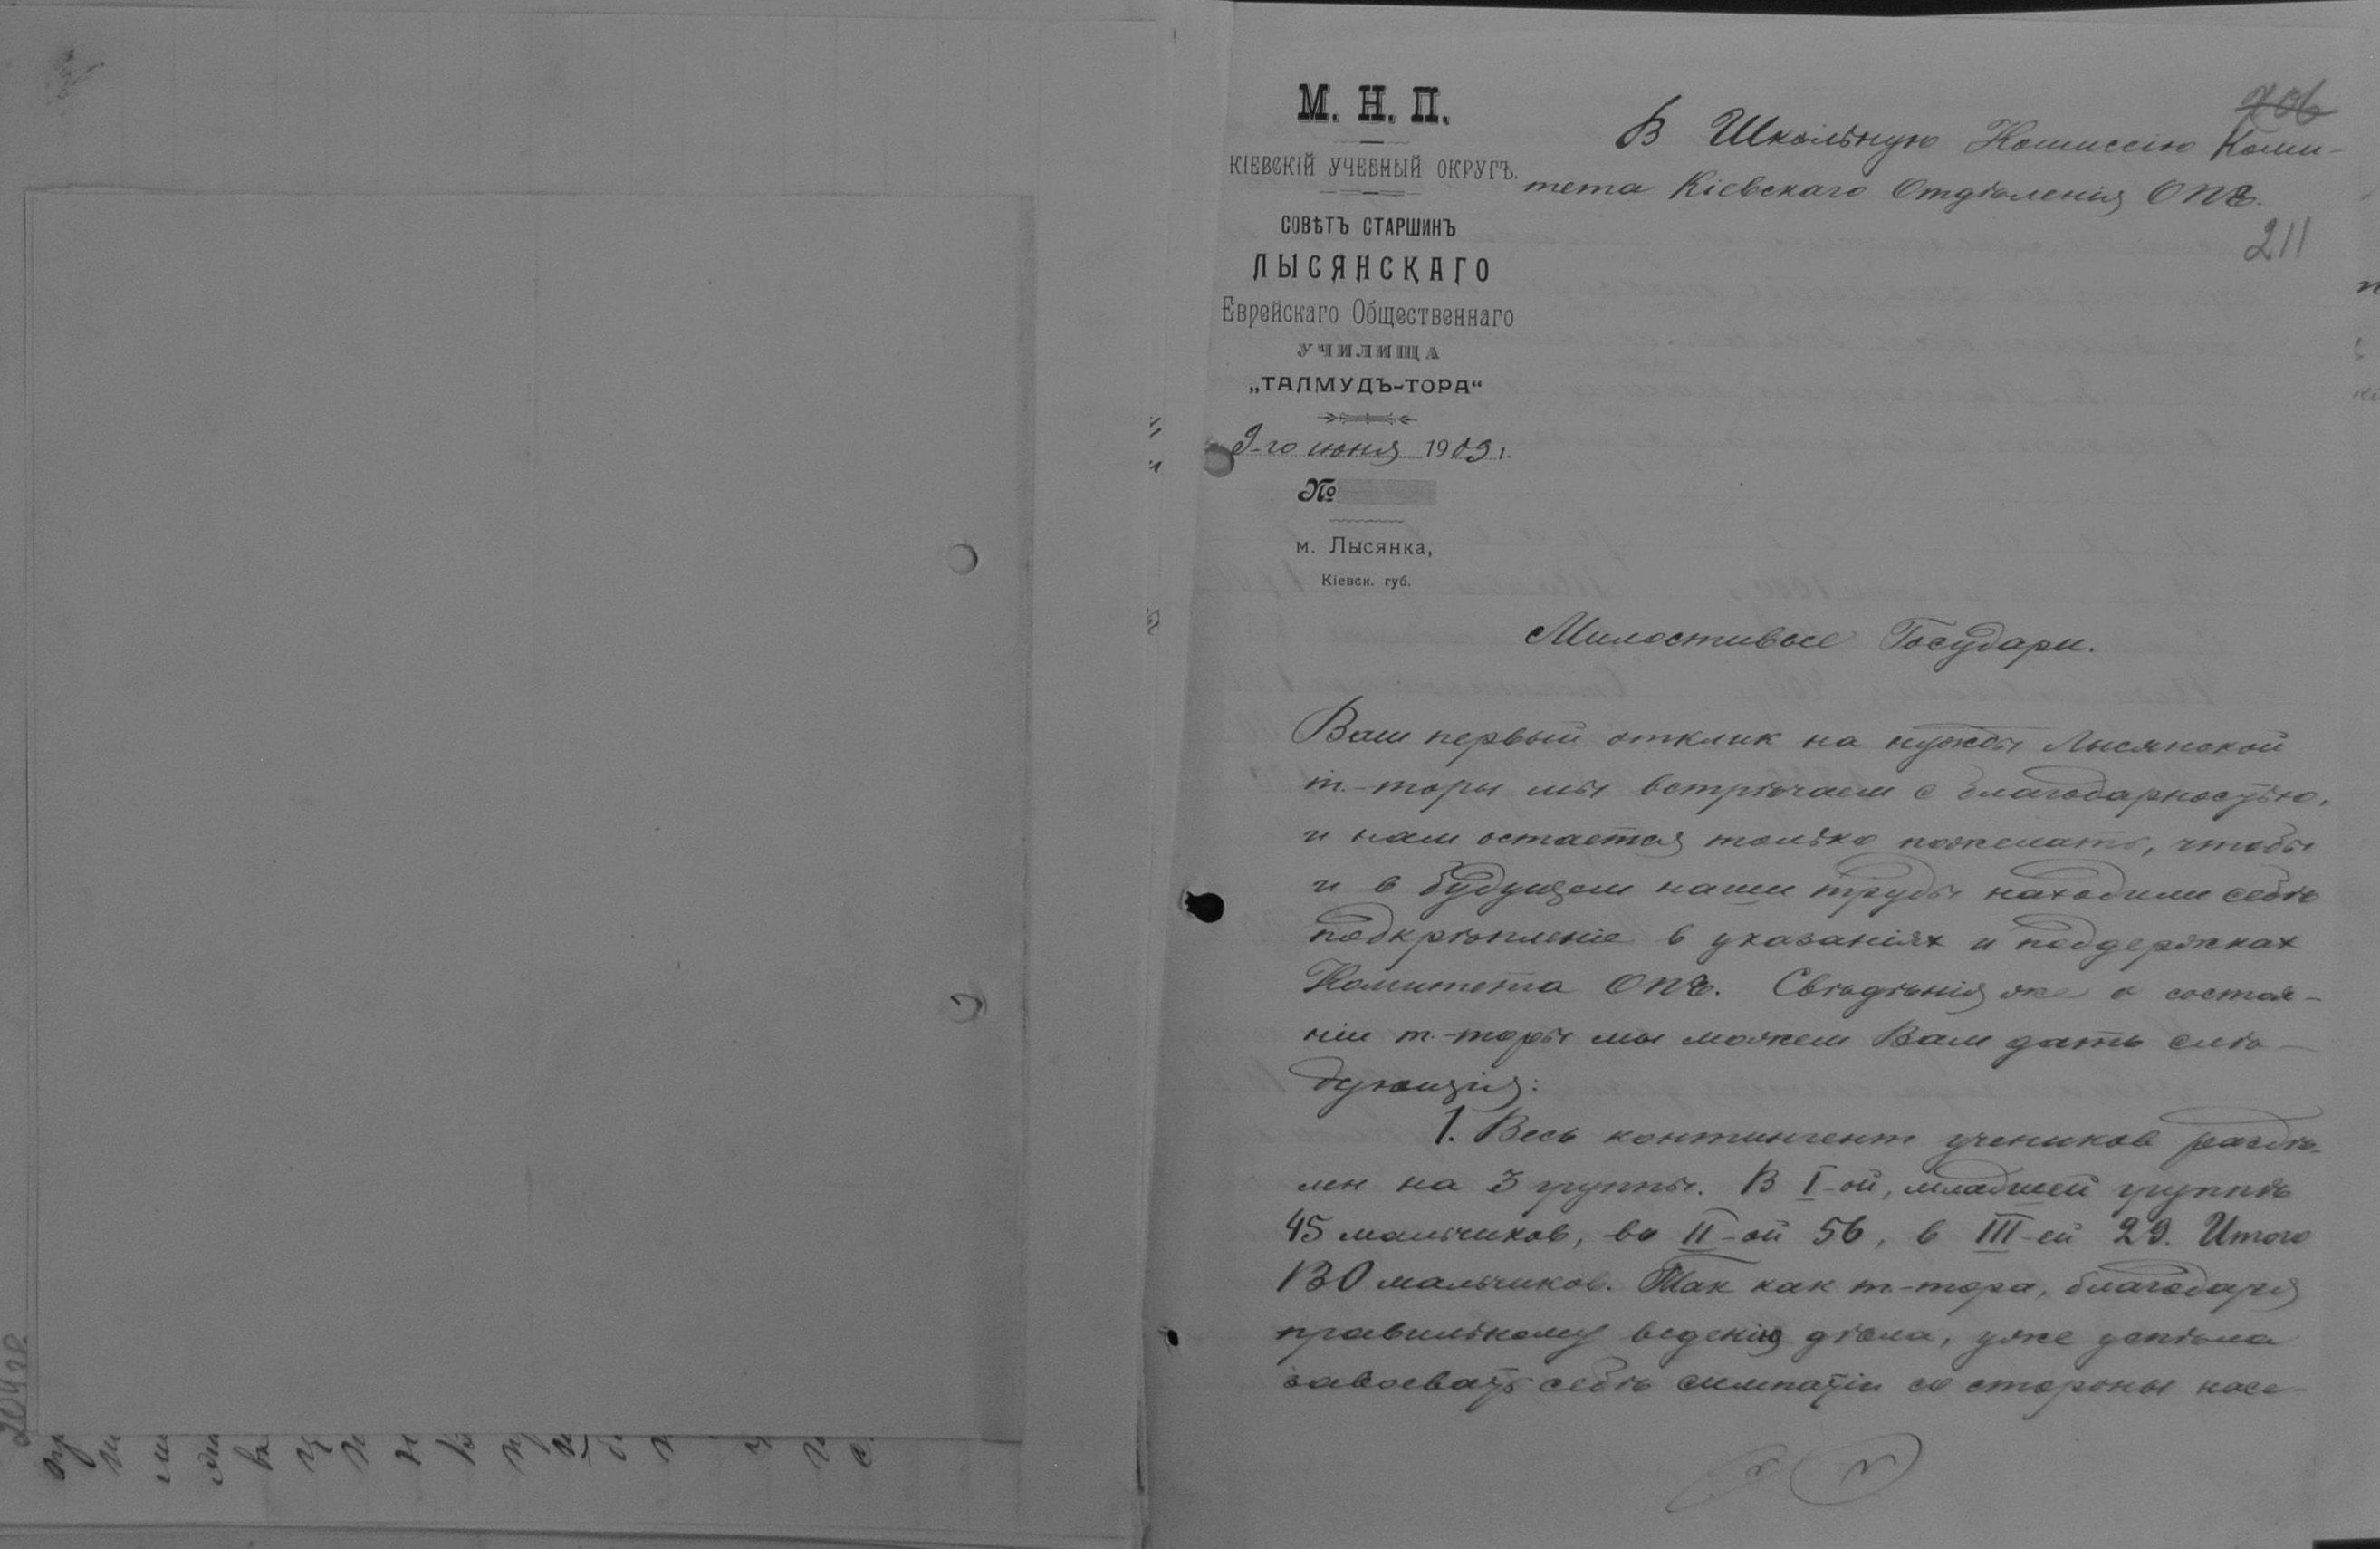 М. Н. П.
КІЕВСКІЙ УЧЕБНЫЙ ОКРУГЪ.
СОВѢТЪ СТАРШИНЪ
ЛЫСЯНСКАГО
Еврейскаго Общественнаго
УЧИЛИЩА
„ТАЛМУДЪ-ТОРА“
9-го июня 1909 г.
№
м. Лысянка,
Кіевск. губ.
206
В Школьную Комиссію Коми-
тета Кіевскаго Отдѣленія ОПЕ.
211
Милостивые Государи.
Ваш первый отклик на нужды Лысянской
т.-торы мы встрѣчаем с благодарностью,
и нам остается только пожелать, чтобы
и в будущем наши труды находили себѣ
подкрѣпленіе в указаніях и поддержках
Комитета ОПЕ. Свѣдѣнія же о состоя-
ніи т.-торы мы можем Вам дать слѣ-
дующія:
1. Весь контингент учеников раздѣ-
лен на 3 группы. В I-ой, младшей группѣ
45 мальчиков, во II-ой 56, в III-ей 29. Итого
130 мальчиков. Так как т.-тора, благодаря
правильному веденію дѣла, уже успѣла
завоевать себѣ симпатіи со стороны насе-
204 об.